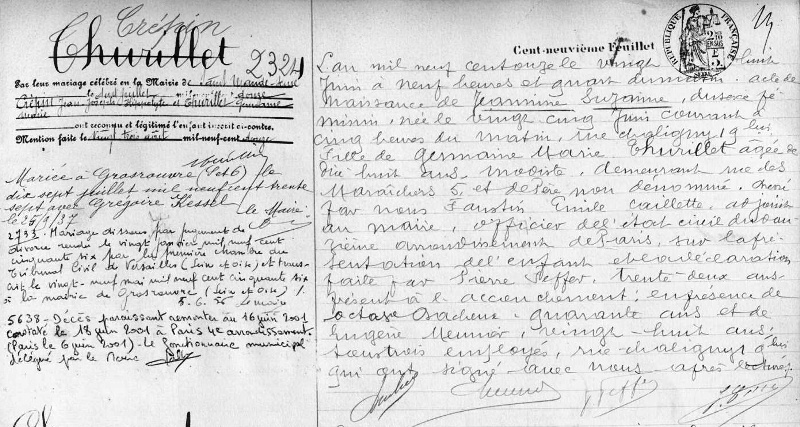 Crépin
Thurillet
2324
Par leur mariage célébré en la Mairie de Saint Mandé
le sept juillet mil neuf cent douze
Crépin Jean Joseph Hippolyte et Thurillet Germaine
Marie
ont reconnu et légitimé l'enfant inscrit ci-contre.
Mention faite le vingt trois août mil-neuf-cent douze
Mariée à Grosrouvre (S et O) le
dix sept juillet mil neuf cent trente
sept avec Grégoire Kessel
le 25/9/37 le Maire
2793 - Mariage dissous par jugement de
divorce rendu le vingt janvier mil neuf cent
cinquante six par la première chambre du
Tribunal Civil de Versailles (Seine et Oise) et trans-
crit le vingt-neuf mai mil neuf cent cinquante six
à la mairie de Grosrouvre (Seine et Oise) /.
5.6.56
5638 - Décès paraissant remonter au 16 juin 2001
constaté le 18 juin 2001 à Paris 4e arrondissement.
(Paris le 6 juin 2001) - le fonctionnaire municipal
délégué par le Maire
Cent-neuvième Feuillet
RÉPUBLIQUE FRANÇAISE
L'an mil neuf cent onze le vingt huit
Juin à neuf heures et quart du matin. acte de
Naissance de Jeannine Suzanne, du sexe fé-
minin, née le vingt cinq Juin courant à
cinq heures du matin, rue Chaligny, 9 bis
Fille de Germaine Marie Thurillet agée de
dix huit ans modiste, demeurant rue des
Maraîchers 5, et de père non dénommé. dressé
par nous Faustin Emile Caillette, adjoint
au maire, officier de l'état civil du dou-
zième arrondissement de Paris, sur la pré-
sentation de l'enfant et la déclaration
faite par Pierre Peffer, trente deux ans
présent à l'accouchement; en présence de
Octave quarante ans et de
Eugène Meunier, vingt-huit ans;
tous trois employés, rue Chaligny 9 bis
qui ont signé avec nous après lecture